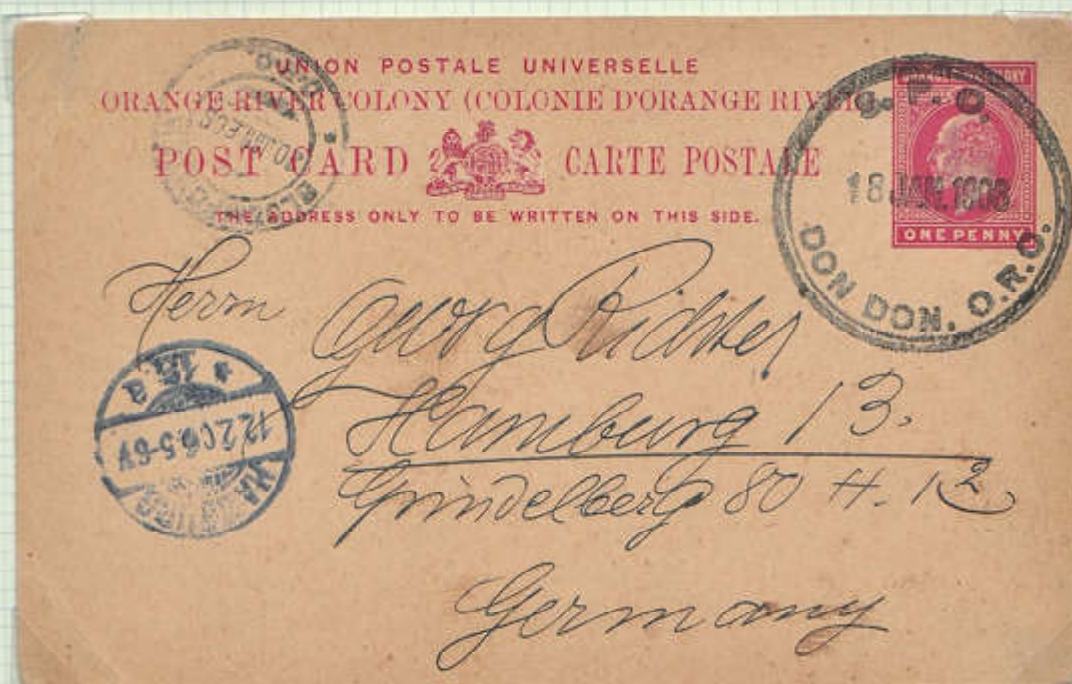 UNION POSTALE UNIVERSELLE
ORANGE RIVER COLONY (COLONIE D'ORANGE RIVER
POST CARD CARTE POSTALE
THE ADDRESS ONLY TO BE WRITTEN ON THIS SIDE.
ONE PENNY
G. P. O.
18 JAN. 1906
DON DON. O.R.C.
Herrn Georg Richter
Hamburg 13.
Grindelberg 80 H. 12
Germany
12.2.06.5-6V